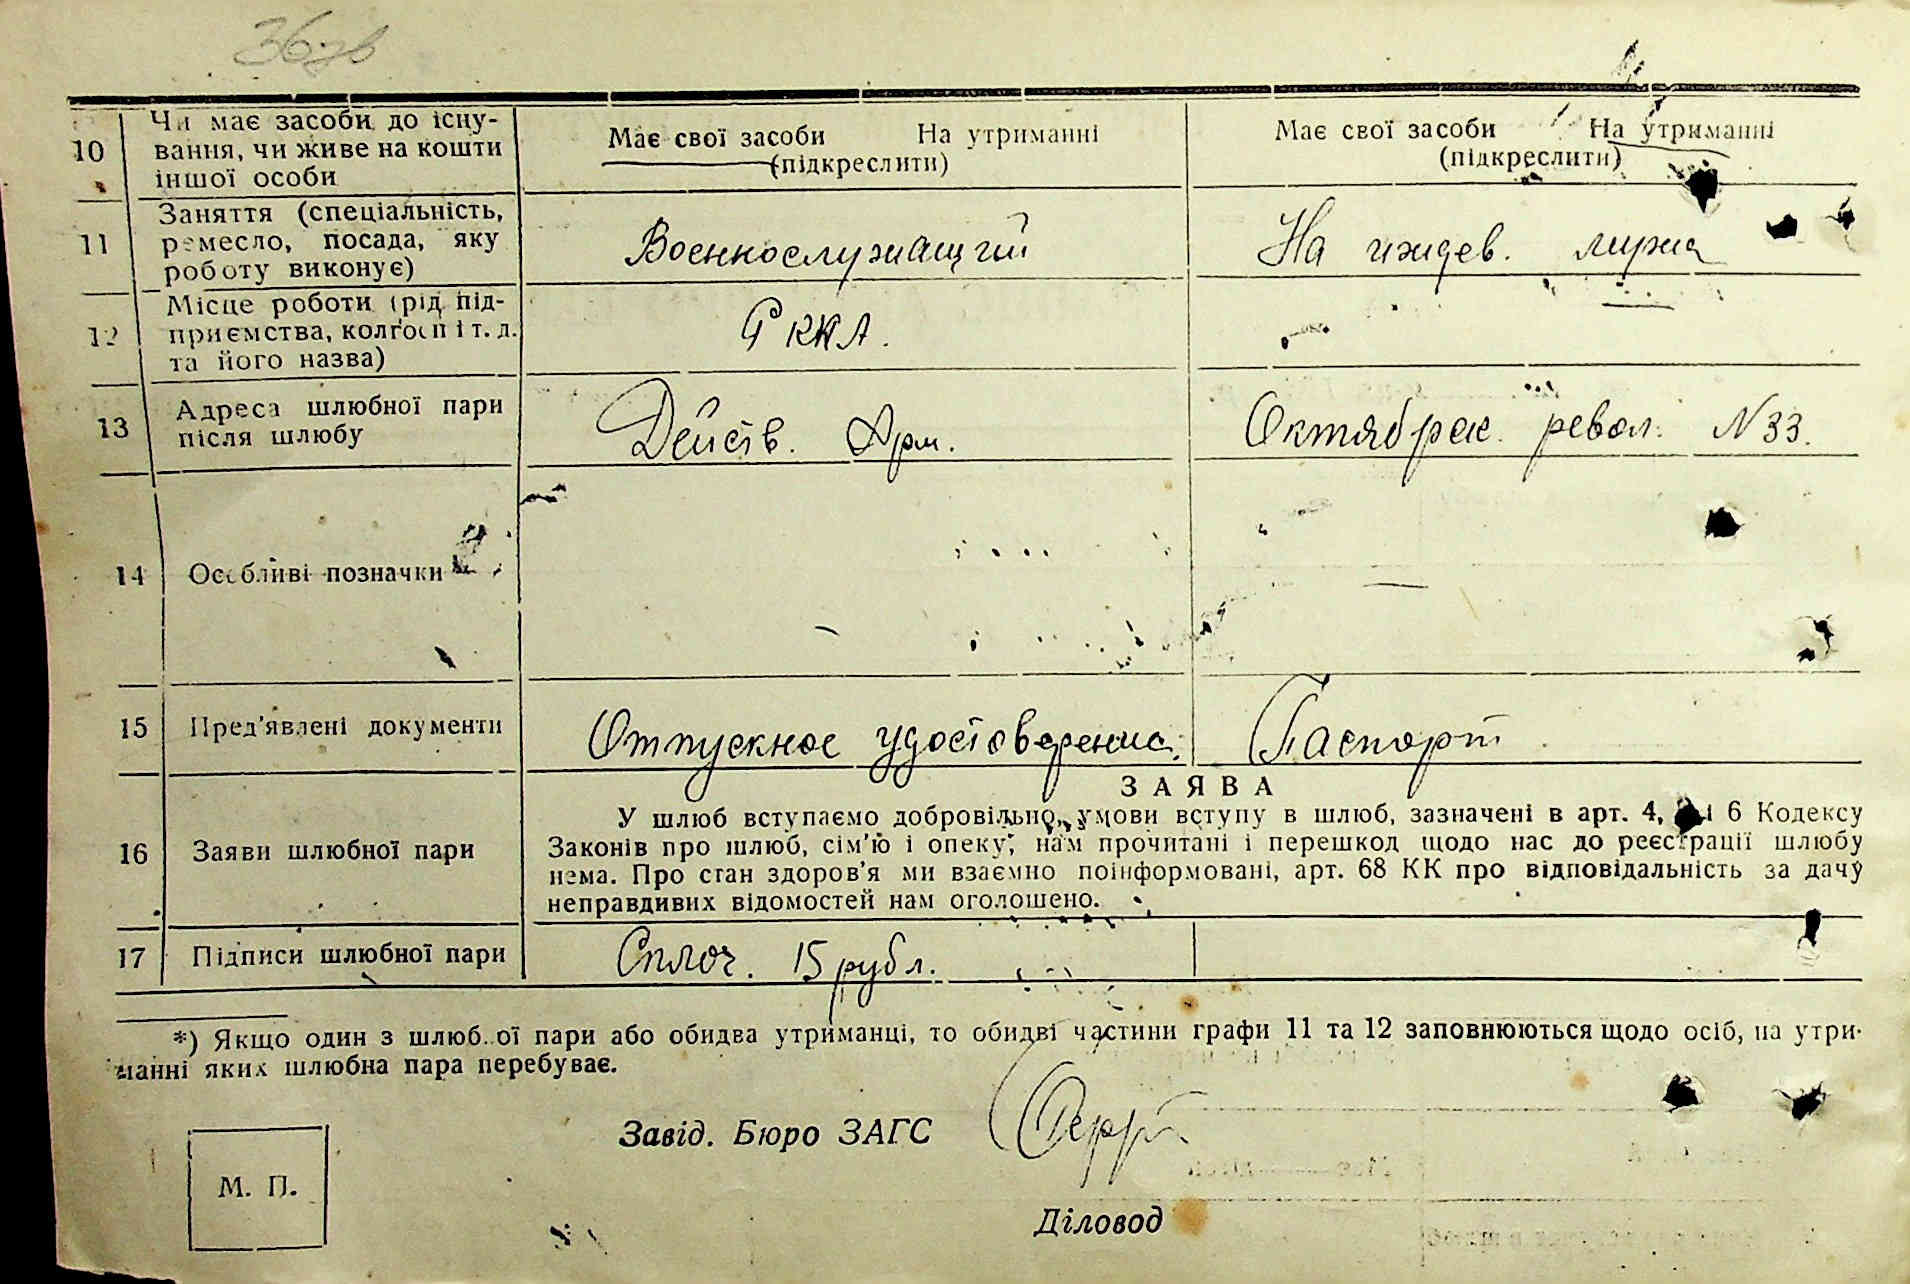 36 зв
10 Чи має засоби до існу-
вання, чи живе на кошти
іншої особи
Має свої засоби На утриманні
(підкреслити)
Має свої засоби На утриманні
(підкреслити)
11 Заняття (спеціальність,
ремесло, посада, яку
роботу виконує)
Военнослужащий
На иждев. мужа
12 Місце роботи (рід під-
приємства, колгосп і т. д.
та його назва)
РККА.
13 Адреса шлюбної пари
після шлюбу
Действ. Арм.
Октябрск. револ. N 33.
14 Особливі позначки
15 Пред'явлені документи
Отпускное удостоверение.
Паспорт
ЗАЯВА
16 Заяви шлюбної пари
У шлюб вступаємо добровільно, умови вступу в шлюб, зазначені в арт. 4, і 6 Кодексу
Законів про шлюб, сім'ю і опеку, нам прочитані і перешкод щодо нас до реєстрації шлюбу
нема. Про стан здоров'я ми взаємно поінформовані, арт. 68 КК про відповідальність за дачу
неправдивих відомостей нам оголошено.
17 Підписи шлюбної пари
Сплоч. 15 рубл.
*) Якщо один з шлюб..ої пари або обидва утриманці, то обидві частини графи 11 та 12 заповнюються щодо осіб, на утри-
манні яких шлюбна пара перебуває.
Завід. Бюро ЗАГС
М. П.
Діловод